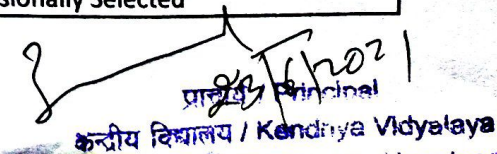 sionally Selected
23/6/2021
प्राचार्य / Principal
केन्द्रीय विद्यालय / Kendriya Vidyalaya